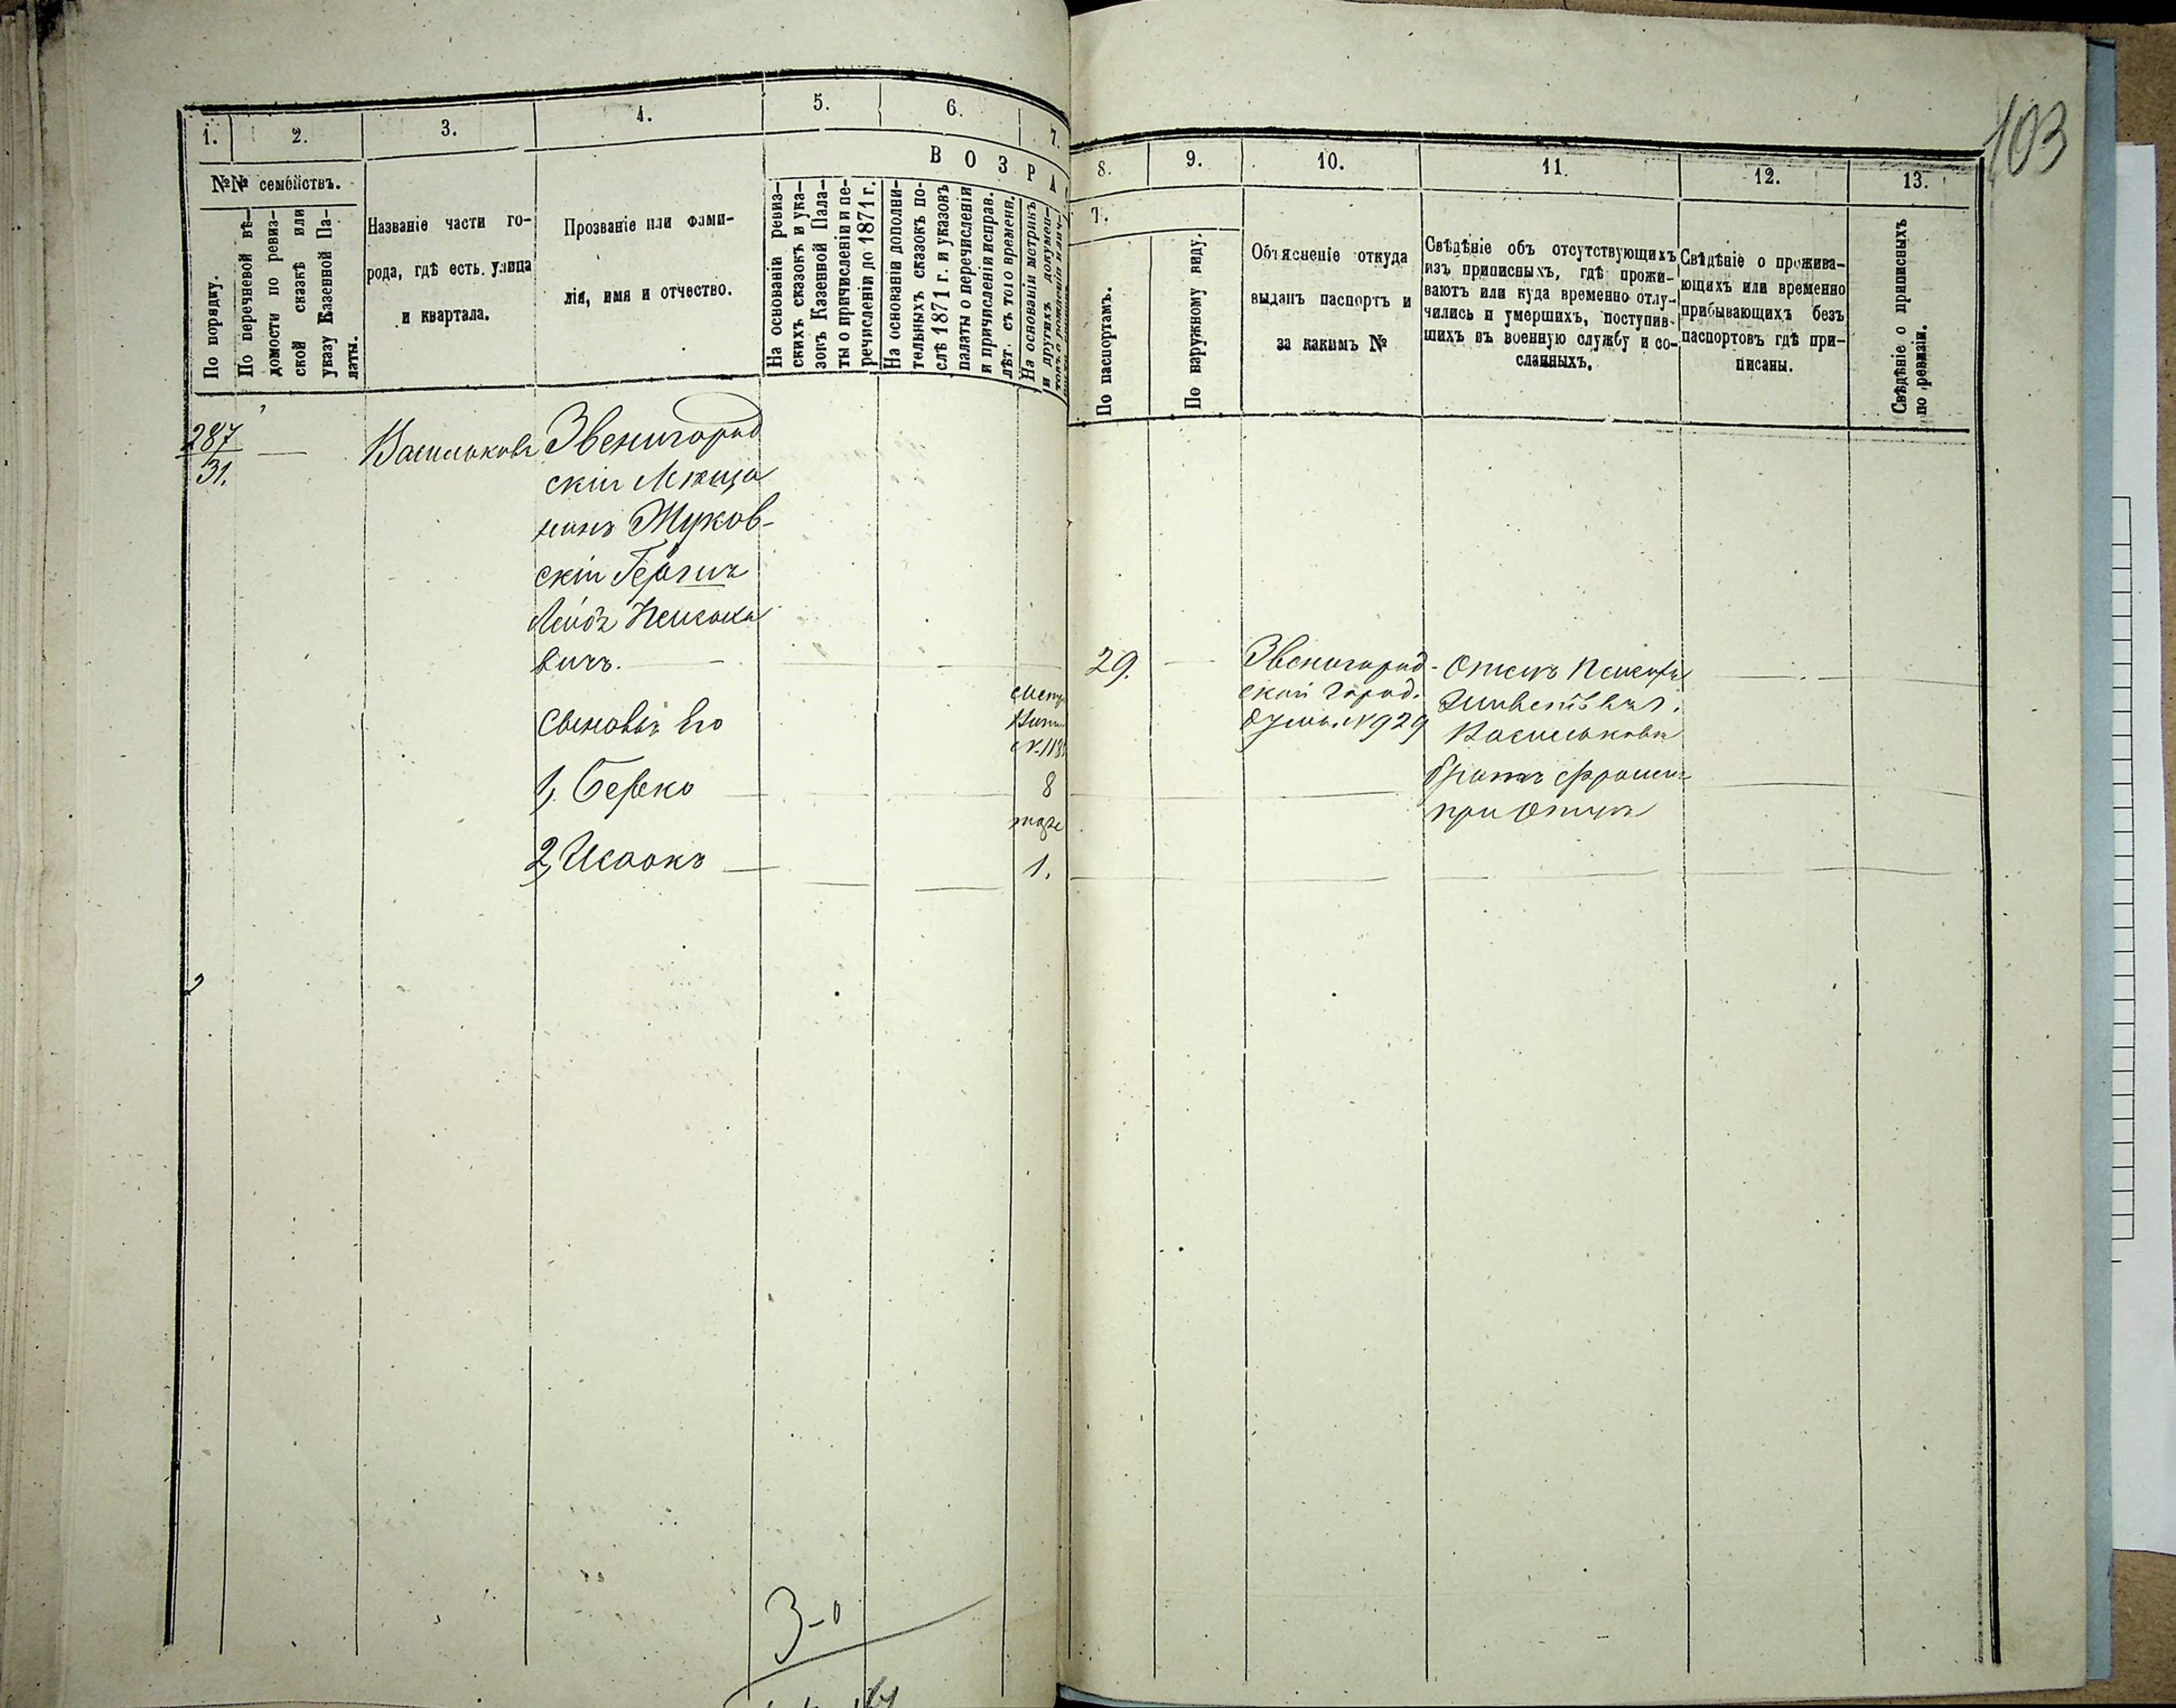 103
1.
2.
3.
4.
5.
6.
7.
ВОЗРА
№№ семействъ.
По порядку.
По перечневой вѣ-
домости по ревиз-
ской сказкѣ или
указу Казенной Па-
латы.
Названіе части го-
рода, гдѣ есть улица
и квартала.
Прозваніе или фами-
лія, имя и отчество.
На основаніи ревиз-
скихъ сказокъ и ука-
зовъ Казенной Пала-
ты о причисленіи и пе-
речисленіи до 1871 г.
На основаніи дополни-
тельныхъ сказокъ по-
слѣ 1871 г. и указовъ
палаты о перечисленіи
и причисленіи исправ.
лѣт. съ того времени.
На основаніи метрикъ
и другихъ докумен-
8.
9.
10.
11.
12.
13.
Т.
По паспортамъ.
По наружному виду.
Объясненіе откуда
выданъ паспортъ и
за какимъ №
Свѣдѣніе объ отсутствующихъ
изъ приписныхъ, гдѣ прожи-
ваютъ или куда временно отлу-
чились и умершихъ, поступив-
шихъ въ военную службу и со-
сланныхъ.
Свѣдѣніе о прожива-
ющихъ или временно
прибывающихъ безъ
паспортовъ гдѣ при-
писаны.
Свѣдѣніе о приписныхъ
по ревизіи.
287
31.
Васильковъ
Звенигород
скій Мѣща
нинъ Жуков-
скій Гершъ
Лейбъ
вичъ.
Сыновья Его
1, Берко
2, Исаокъ
8
тоже
1.
29.
Звенигород-
ской Город.
Думы. № 929
Отецъ
Васильковъ
братъ
при Отцѣ
3-0